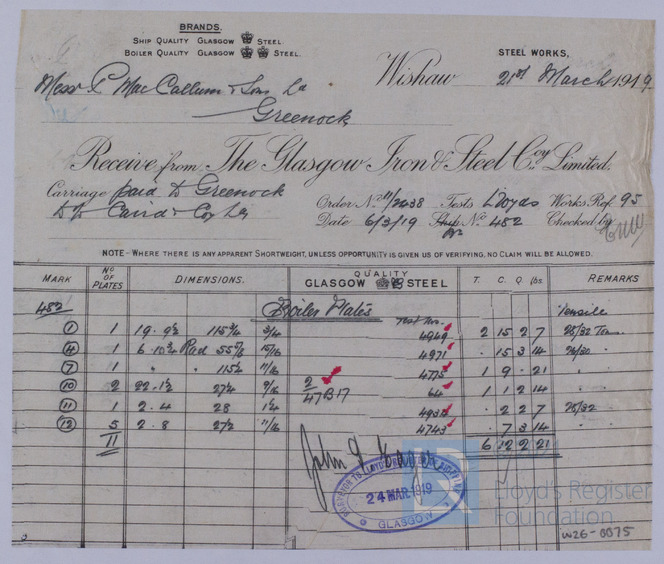 BRANDS.
SHIP QUALITY GLASGOW STEEL.
BOILER QUALITY GLASGOW STEEL.
STEEL WORKS,
Wishaw 21st March 1919
Messrs P MacCallum & Sons Ld
Greenock
Receive from The Glasgow Iron & Steel Coy. Limited.
Carriage paid to Greenock
Order No. 11/2638 Tests Lloyds Works Ref. 95
Caird & Coy Ld
Date 6/3/19 Ship No. 482 Checked by
NOTE - WHERE THERE IS ANY APPARENT SHORTWEIGHT, UNLESS OPPORTUNITY IS GIVEN US OF VERIFYING, NO CLAIM WILL BE ALLOWED.
MARK No OF PLATES DIMENSIONS. QUALITY GLASGOW STEEL T. C. Q lbs. REMARKS
482 Boiler Plates Test Nos. Tensile
1 1 19. 9½ 115¾ 3/4 4949 2 15 2 7 28/32 Tons
4 1 6. 10¾ Rad 55⅞ 15/16 4971 . 15 3 14 26/30
7 1 " " 115½ 11/16 4775 1 9 . 21 "
10 2 22. 1½ 27¼ 9/16 2/47B17 64 1 1 2 14 "
11 1 2. 4 28 1¼ 4935 . 2 2 7 28/32
12 5 2. 8 27½ 11/16 4743 . 7 3 14 "
11 6 12 2 21
John
SURVEYOR TO LLOYD'S REGISTER
24 MAR. 1919
GLASGOW
Lloyd's Register
Foundation
W26-0075